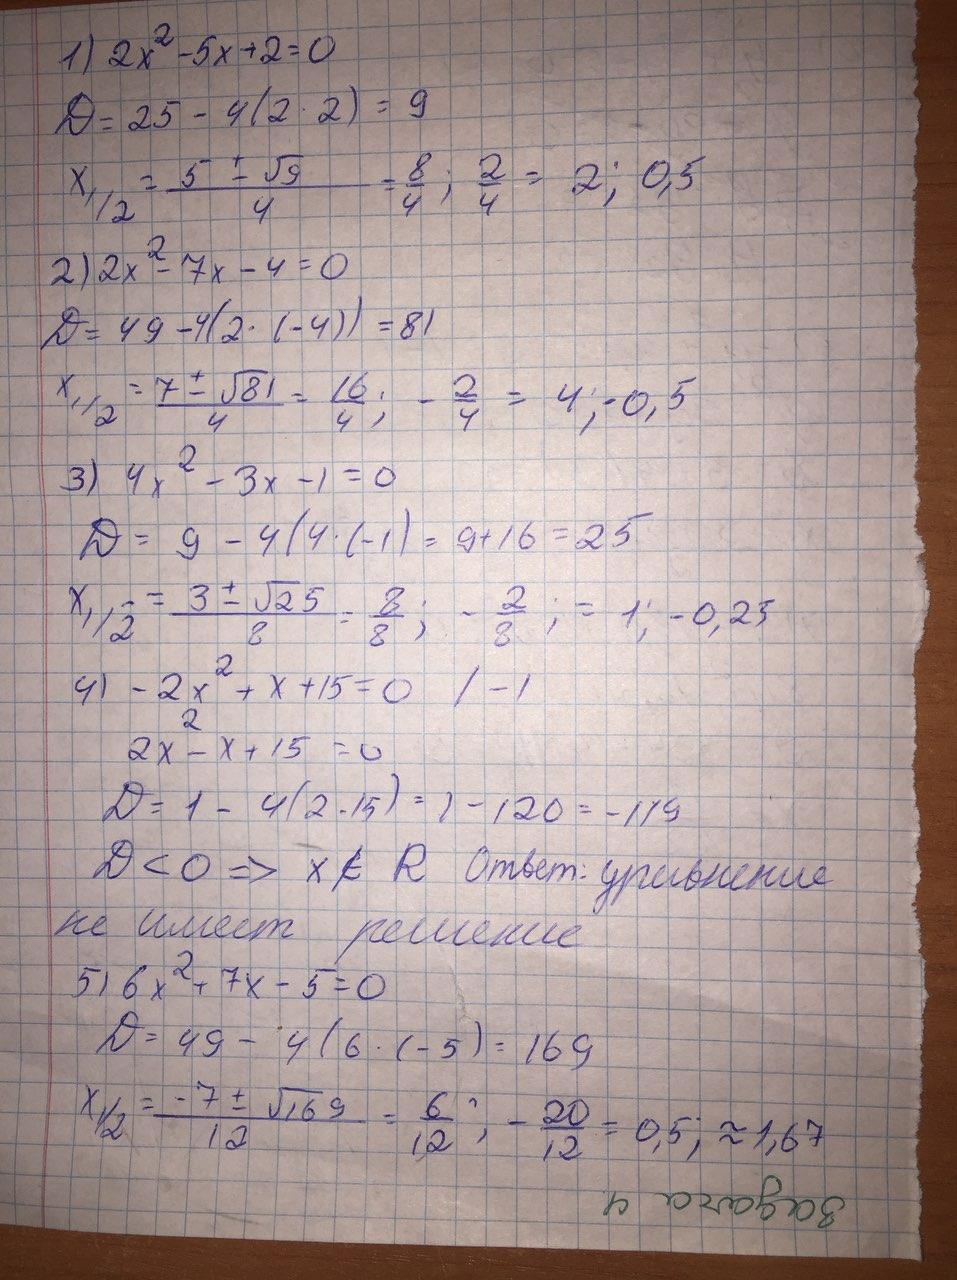 1) 2x² - 5x + 2 = 0
D = 25 - 4(2 · 2) = 9
x₁/₂ = (5 ± √9)/4 = 8/4; 2/4 = 2; 0,5
2) 2x² - 7x - 4 = 0
D = 49 - 4(2 · (-4)) = 81
x₁/₂ = (7 ± √81)/4 = 16/4; - 2/4 = 4; -0,5
3) 4x² - 3x - 1 = 0
D = 9 - 4(4 · (-1) = 9 + 16 = 25
x₁/₂ = (3 ± √25)/8 = 8/8; - 2/8; = 1; -0,25
4) - 2x² + x + 15 = 0 / -1
2x² - x + 15 = 0
D = 1 - 4(2 · 15) = 1 - 120 = -119
D < 0 => x ∉ R Ответ: уравнение
не имеет решение
5) 6x² + 7x - 5 = 0
D = 49 - 4(6 · (-5) = 169
x₁/₂ = (-7 ± √169)/12 = 6/12; - 20/12 = 0,5; ≈ 1,67
Задача 4